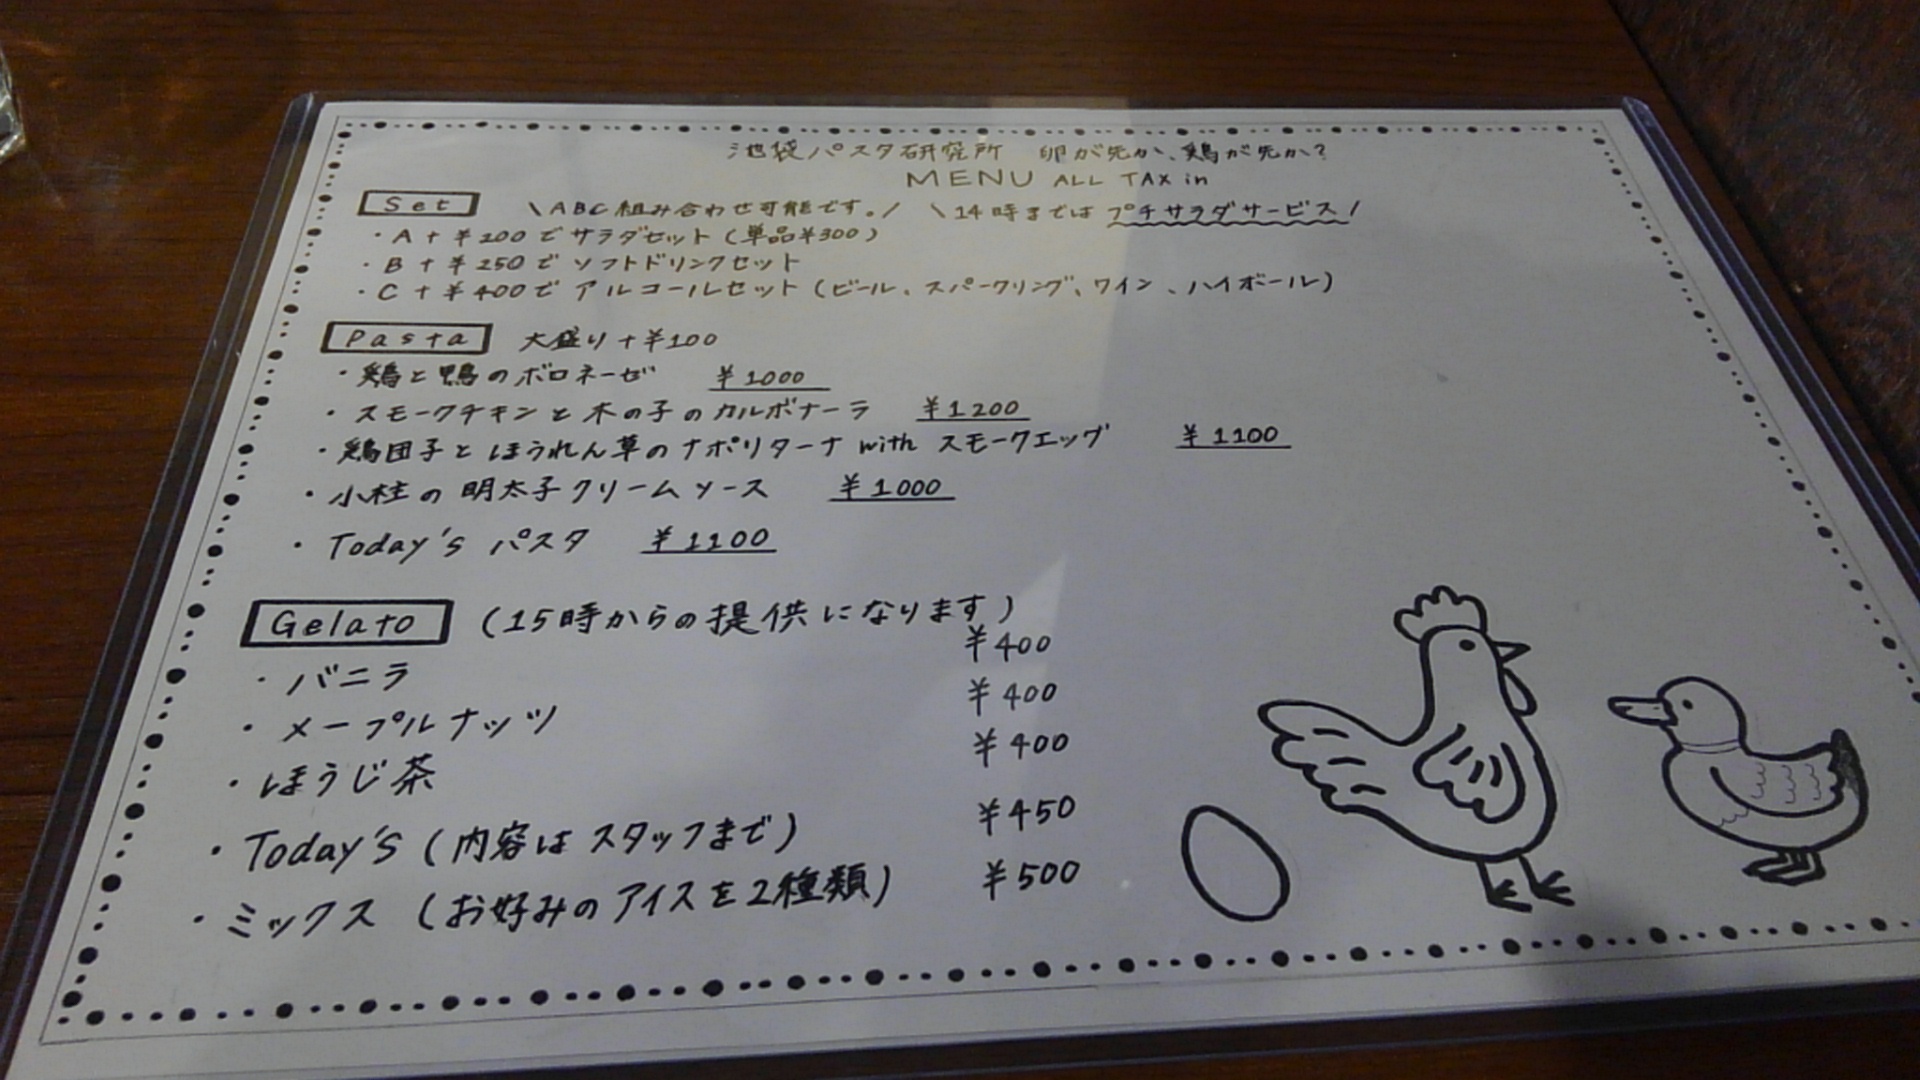 池袋パスタ研究所 卵が先か、鶏が先か?
MENU ALL TAX in
Set \ABC組み合わせ可能です。/ \14時まではプチサラダサービス/
・A+¥200でサラダセット(単品¥300)
・B+¥250でソフトドリンクセット
・C+¥400でアルコールセット(ビール、スパークリング、ワイン、ハイボール)
Pasta 大盛り+¥100
・鶏と鴨のボロネーゼ ¥1000
・スモークチキンと木の子のカルボナーラ ¥1200
・鶏団子とほうれん草のナポリターナ with スモークエッグ ¥1100
・小柱の明太子クリームソース ¥1000
・Today's パスタ ¥1100
Gelato (15時からの提供になります)
・バニラ ¥400
・メープルナッツ ¥400
・ほうじ茶 ¥400
・Today's(内容はスタッフまで) ¥450
・ミックス(お好みのアイスを2種類) ¥500